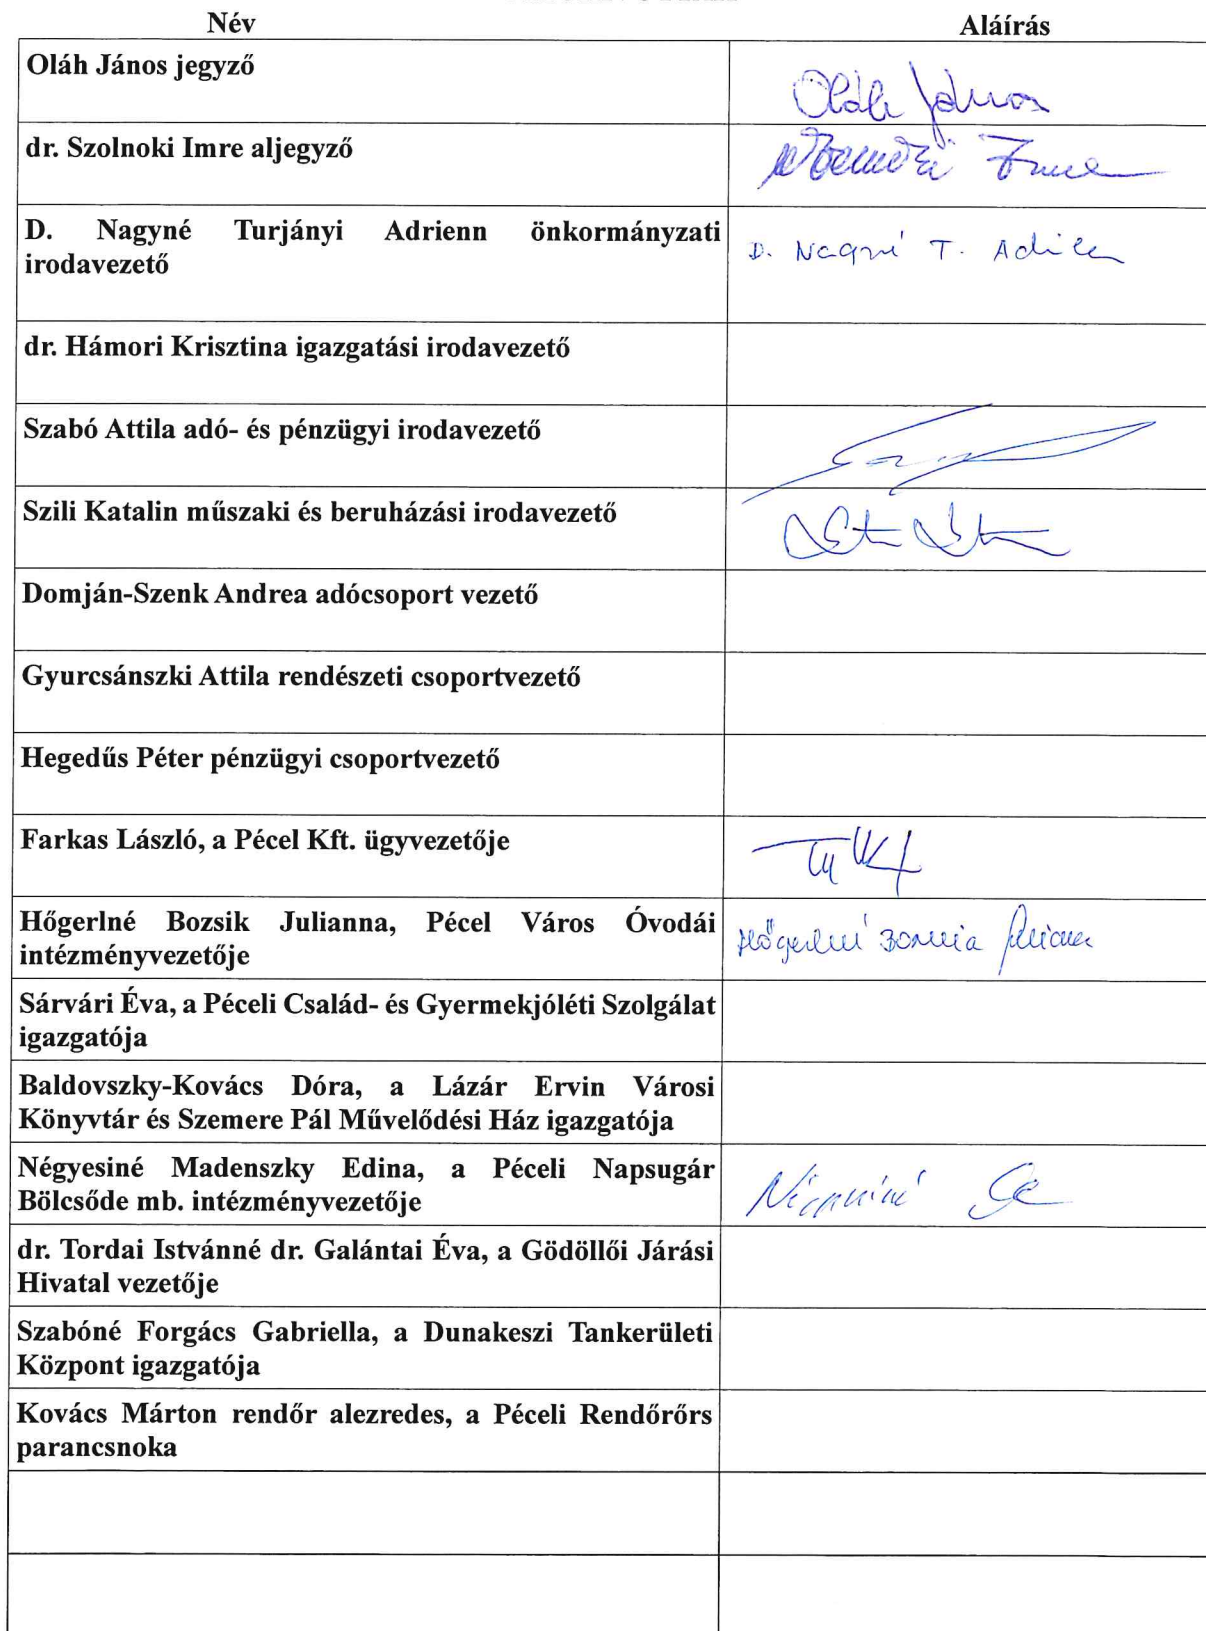 Név
Aláírás
Oláh János jegyző
Oláh János
dr. Szolnoki Imre aljegyző
Imre
D. Nagyné Turjányi Adrienn önkormányzati
irodavezető
D. Nagyné T. Adrienn
dr. Hámori Krisztina igazgatási irodavezető
Szabó Attila adó- és pénzügyi irodavezető
Szili Katalin műszaki és beruházási irodavezető
Domján-Szenk Andrea adócsoport vezető
Gyurcsánszki Attila rendészeti csoportvezető
Hegedűs Péter pénzügyi csoportvezető
Farkas László, a Pécel Kft. ügyvezetője
Hőgerlné Bozsik Julianna, Pécel Város Óvodái
intézményvezetője
Hőgerlné
Sárvári Éva, a Péceli Család- és Gyermekjóléti Szolgálat
igazgatója
Baldovszky-Kovács Dóra, a Lázár Ervin Városi
Könyvtár és Szemere Pál Művelődési Ház igazgatója
Négyesiné Madenszky Edina, a Péceli Napsugár
Bölcsőde mb. intézményvezetője
Négyesiné
dr. Tordai Istvánné dr. Galántai Éva, a Gödöllői Járási
Hivatal vezetője
Szabóné Forgács Gabriella, a Dunakeszi Tankerületi
Központ igazgatója
Kovács Márton rendőr alezredes, a Péceli Rendőrőrs
parancsnoka